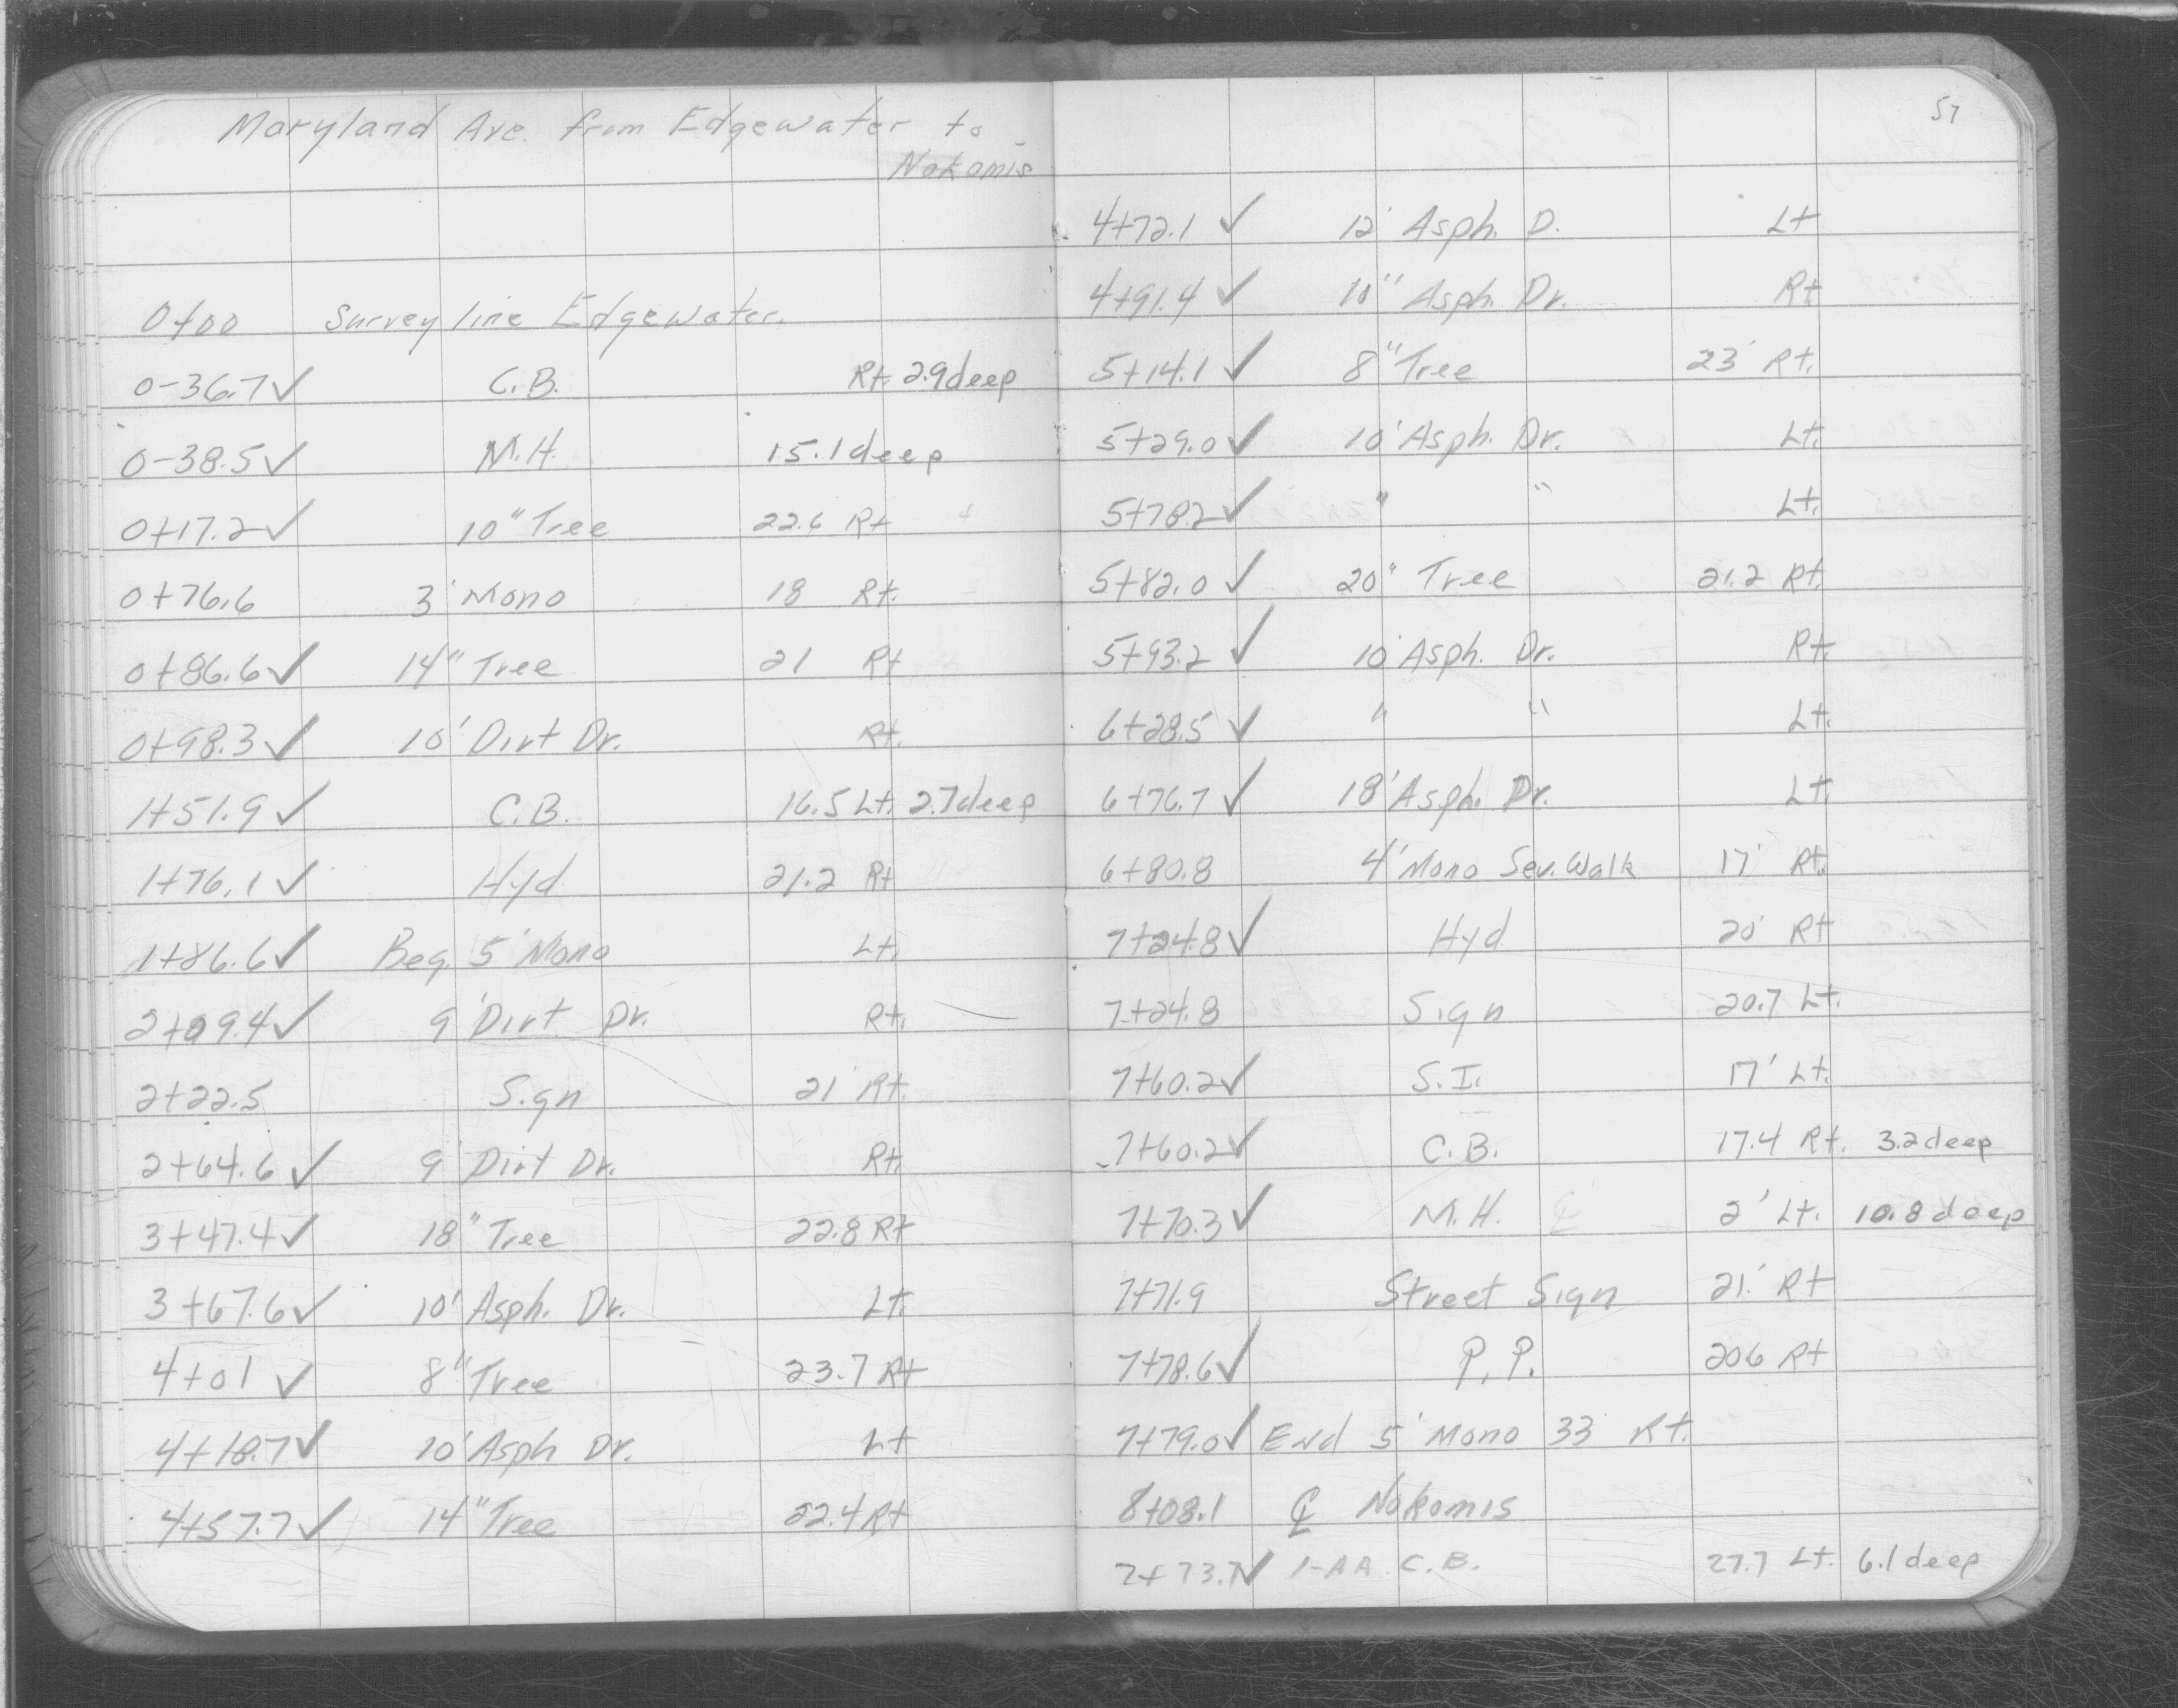 Maryland Ave. from Edgewater to
Nokomis
0+00 Survey line Edgewater.
0-36.7✓ C.B. Rt. 2.9deep
0-38.5✓ M.H. 15.1deep
0+17.2✓ 10" Tree 22.6 Rt
0+76.6 3' Mono 18 Rt.
0+86.6✓ 14" Tree 21 Rt
0+98.3✓ 10' Dirt Dr. Rt.
1+51.9✓ C.B. 16.5 Lt. 2.7deep
1+76.1✓ Hyd 21.2 Rt
1+86.6✓ Beg. 5' Mono Lt.
2+09.4✓ 9' Dirt Dr. Rt.
2+22.5 Sign 21' Rt.
2+64.6✓ 9' Dirt Dr. Rt.
3+47.4✓ 18" Tree 22.8 Rt
3+67.6✓ 10' Asph. Dr. Lt.
4+01✓ 8" Tree 23.7 Rt
4+18.7✓ 10' Asph Dr. Lt
4+57.7✓ 14" Tree 22.4 Rt
57
4+72.1✓ 12' Asph. D. Lt
4+91.4✓ 10" Asph. Dr. Rt
5+14.1✓ 8" Tree 23' Rt.
5+29.0✓ 10' Asph. Dr. Lt.
5+78.2✓ " " Lt.
5+82.0✓ 20" Tree 21.2 Rt.
5+93.2✓ 10' Asph. Dr. Rt.
6+28.5✓ " " Lt.
6+76.7✓ 18' Asph. Dr. Lt.
6+80.8 4' Mono Ser. Walk 17' Rt.
7+24.8✓ Hyd 20' Rt
7+24.8 Sign 20.7 Lt.
7+60.2✓ S.I. 17' Lt.
7+60.2✓ C.B. 17.4 Rt. 3.2deep
7+70.3✓ M.H. ℄ 2' Lt. 10.8 deep
7+71.9 Street Sign 21' Rt
7+78.6✓ P.P. 20.6 Rt
7+79.0✓ End 5' Mono 33 Rt.
8+08.1 ℄ Nokomis
7+73.7✓ 1-AA C.B. 27.7 Lt. 6.1deep